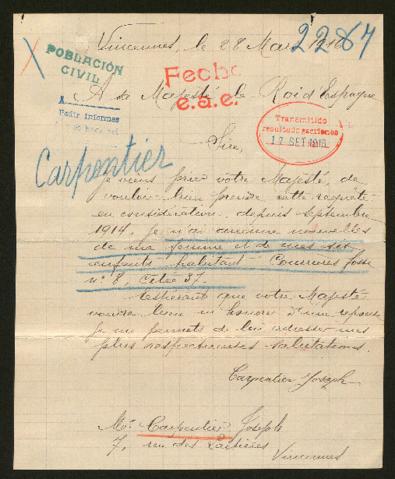 Vincennes, le 28 Mars 1916
22867
POBLACIÓN
CIVIL
Fecho
e.a.e.
A sa Majesté le Roi d'Espagne
Pedir informes
Transmitido
resultado gestiones
17 SET 1916
Sire,
Carpentier
Je viens prier votre Majesté, de
vouloir bien prendre cette requête
en considération. depuis septembre
1914, je n'ai aucune nouvelles
de ma femme et de mes six
enfants habitant Courrières fosse
n° 8, Cité 37.
Espérant que votre Majesté
voudra bien m'honorer d'une réponse
je me permets de lui adresser mes
plus respectueuses salutations.
Carpentier Joseph
Mr Carpentier Joseph
7, rue des Laitières
Vincennes